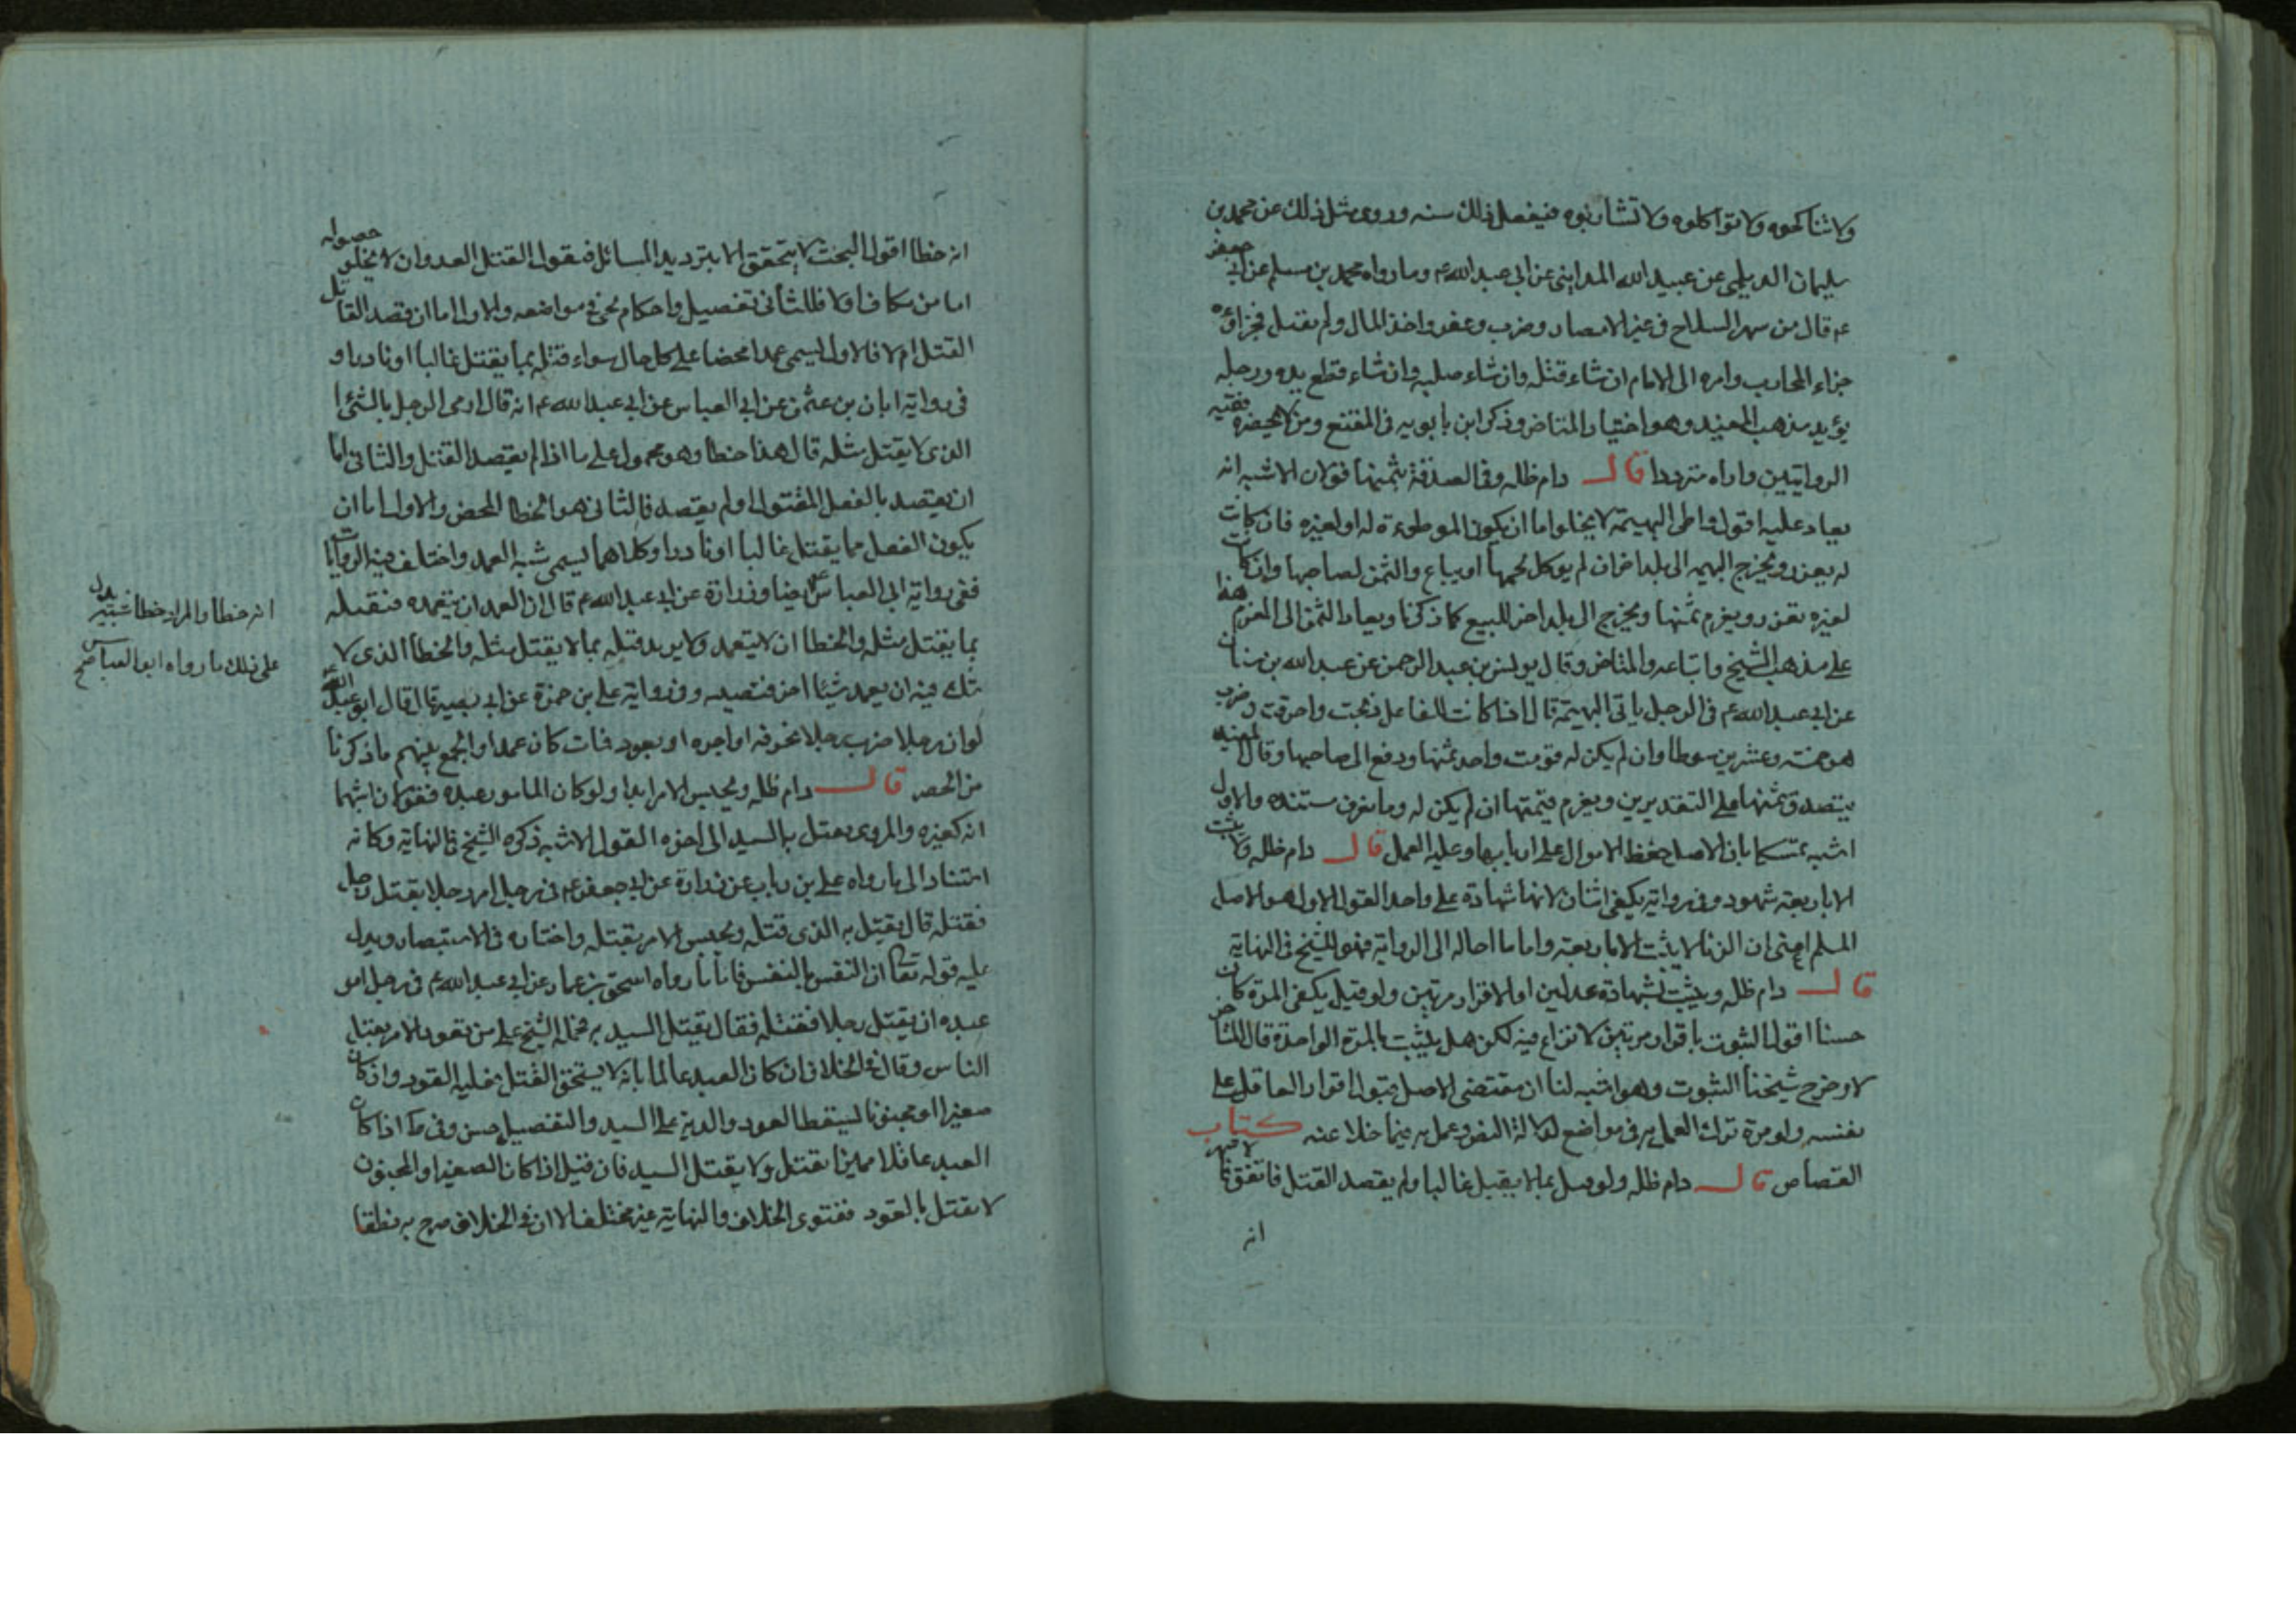 ولا تناكحوه ولا تواكلوه ولا تشاربوه فيفعل ذلك سنه وروى مثل ذلك عن محمد بن
سليمان الديلمى عن عبيد الله المداينى عن ابى عبد الله ء م وما رواه محمد بن مسلم عن ابى جعفر
ء م قال من شهر السلاح فى غير الامصار وضرب وعقر واخذ المال ولم يقتل فجزاؤه
جزاء المحارب وامره الى الامام ان شاء قتله وان شاء صلبه وان شاء قطع يده ورجله
يؤيد مذهب المفيد وهو اختيار المتاخر وذكر ابن بابويه فى المقنع ومن لا يحضره فقيه
الروايتين واراه مترددا قال دام ظله وفى الصدقة بثمنها قولان الاشبه انه
يعاد عليه اقول واطى البهيمة لا يخلو اما ان يكون الموطوءة له او لغيره فان كانت
له يعزر ويخرج البهيمه الى بلد اخر ان لم يوكل لحمها او يباع والثمن لصاحبها وان كانت
لغيره يعزر ويغرم ثمنها ويخرج الى بلد اخر للبيع كما ذكرنا ويعاد الثمن الى المغرم هذا
على مذهب الشيخ واتباعه والمتاخر وقال يونس بن عبد الرحمن عن عبد الله بن سنان
عن ابى عبد الله ء م فى الرجل ياتى البهيمة قال اذا كانت للفاعل ذبحت واحرقت وضرب
هو خمسة وعشرين سوطا وان لم يكن له قومت واخذ ثمنها ودفع الى صاحبها وقال المفيد
يتصدق بثمنها على التقديرين ويغرم قيمتها ان لم يكن له وما نعرف مستنده والاول
اشبه تمسكا بان الاصل حفظ الاموال على اربابها وعليه العمل قال دام ظله ولا يثبت
الا باربعة شهود وفى رواية يكفى اثنان لانها شهادة على واحد القول الاول هو الاصل
المسلم اعنى ان الزنا لا يثبت الا باربعة واما ما احاله الى الرواية فهو للشيخ فى النهاية
قال دام ظله ويثبت بشهادة عدلين او الاقرار مرتين ولو قيل يكفى المرة كان
حسنا اقول الثبوت باقرار مرتين لا نزاع فيه لكن هل يثبت بالمرة الواحدة قال المتاخر
لا وخرج شيخنا الثبوت وهو اشبه لنا ان مقتضى الاصل قبول اقرار العاقل على
نفسه ولو مرة ترك العمل به فى مواضع لدلالة النص وعمل به فيما خلا عنه كتاب
القصاص قال دام ظله ولو قتل بما لا يقتل غالبا ولم يقصد القتل فاتفق فالاشهر
انه
انه خطا اقول البحث لا يتحقق الا بترديد المسائل فنقول القتل العدوان لا يخلو حصوله
اما من مكاف او لا فللثانى تفصيل واحكام نحى فى مواضعه والاول اما ان قصد القاتل
القتل ام لا فالاول يسمى عمدا محضا على كل حال سواء قتله بما يقتل غالبا او نادرا و
فى رواية ابان بن عثمن عن ابى العباس عن ابى عبد الله ء م انه قال ارمى الرجل بالشئ
الذى لا يقتل مثله قال هذا خطا وهو محمول على ما اذا لم يقصد القتل والثانى اما
ان يقصد بالفعل المقتول او لم يقصد فالثانى هو الخطا المحض والاول اما ان
يكون الفعل مما يقتل غالبا او نادرا وكلاهما يسمى شبه العمد واختلف فيه الروايات
ففى رواية ابى العباس ايضا وزرارة عن ابى عبد الله ء م قال ان العمد ان يتعمده فيقتله
بما يقتل مثله والخطا ان لا يتعمد ولا يريد قتله بما لا يقتل مثله والخطا الذى لا
شك فيه ان يعمد شيئا اخر فتصيبه وفى رواية على بن حمزة عن ابى بصير قال قال ابو عبد الله
لو ان رجلا ضرب رجلا بخزفه او اجره او بعود فمات كان عمدا والجمع بينهم ما ذكرنا
من الحصر قال دام ظله ويحبس الامر ابدا ولو كان المامور عبده فقولان اشبهما
انه كغيره والمروى يقتل به السيد الى اخره القول الاشبه ذكره الشيخ فى النهاية وكانه
استنادا الى ما رواه على بن رباب عن زرارة عن ابى جعفر ء م فى رجل امر رجلا بقتل رجل
فقتله قال يقتل به الذى قتله ويحبس الامر بقتله واختاره فى الاستبصار ويدل
عليه قوله تعا ان النفس بالنفس فاما ما رواه اسحق بن عمار عن ابى عبد الله ء م فى رجل امر
عبده ان يقتل رجلا فقتله فقال يقتل السيد به فحمله الشيخ على من تعود الامر بقتل
الناس وقال فى الخلاف ان كان العبد عالما بانه لا يستحق القتل فعليه القود وان كان
صغيرا او مجنونا يسقط القود والدية على السيد والتفصيل حسن وفى ط اذا كان
العبد عاقلا مميزا يقتل ولا يقتل السيد فان قيل اذا كان الصغير او المجنون
لا يقتل بالقود ففتوى الخلاف والنهاية غير مختلف الا ان فى الخلاف صرح به مطلقا
انه خطا والمراد خطا شبيه يدل
على ذلك ما رواه ابو العباس صح